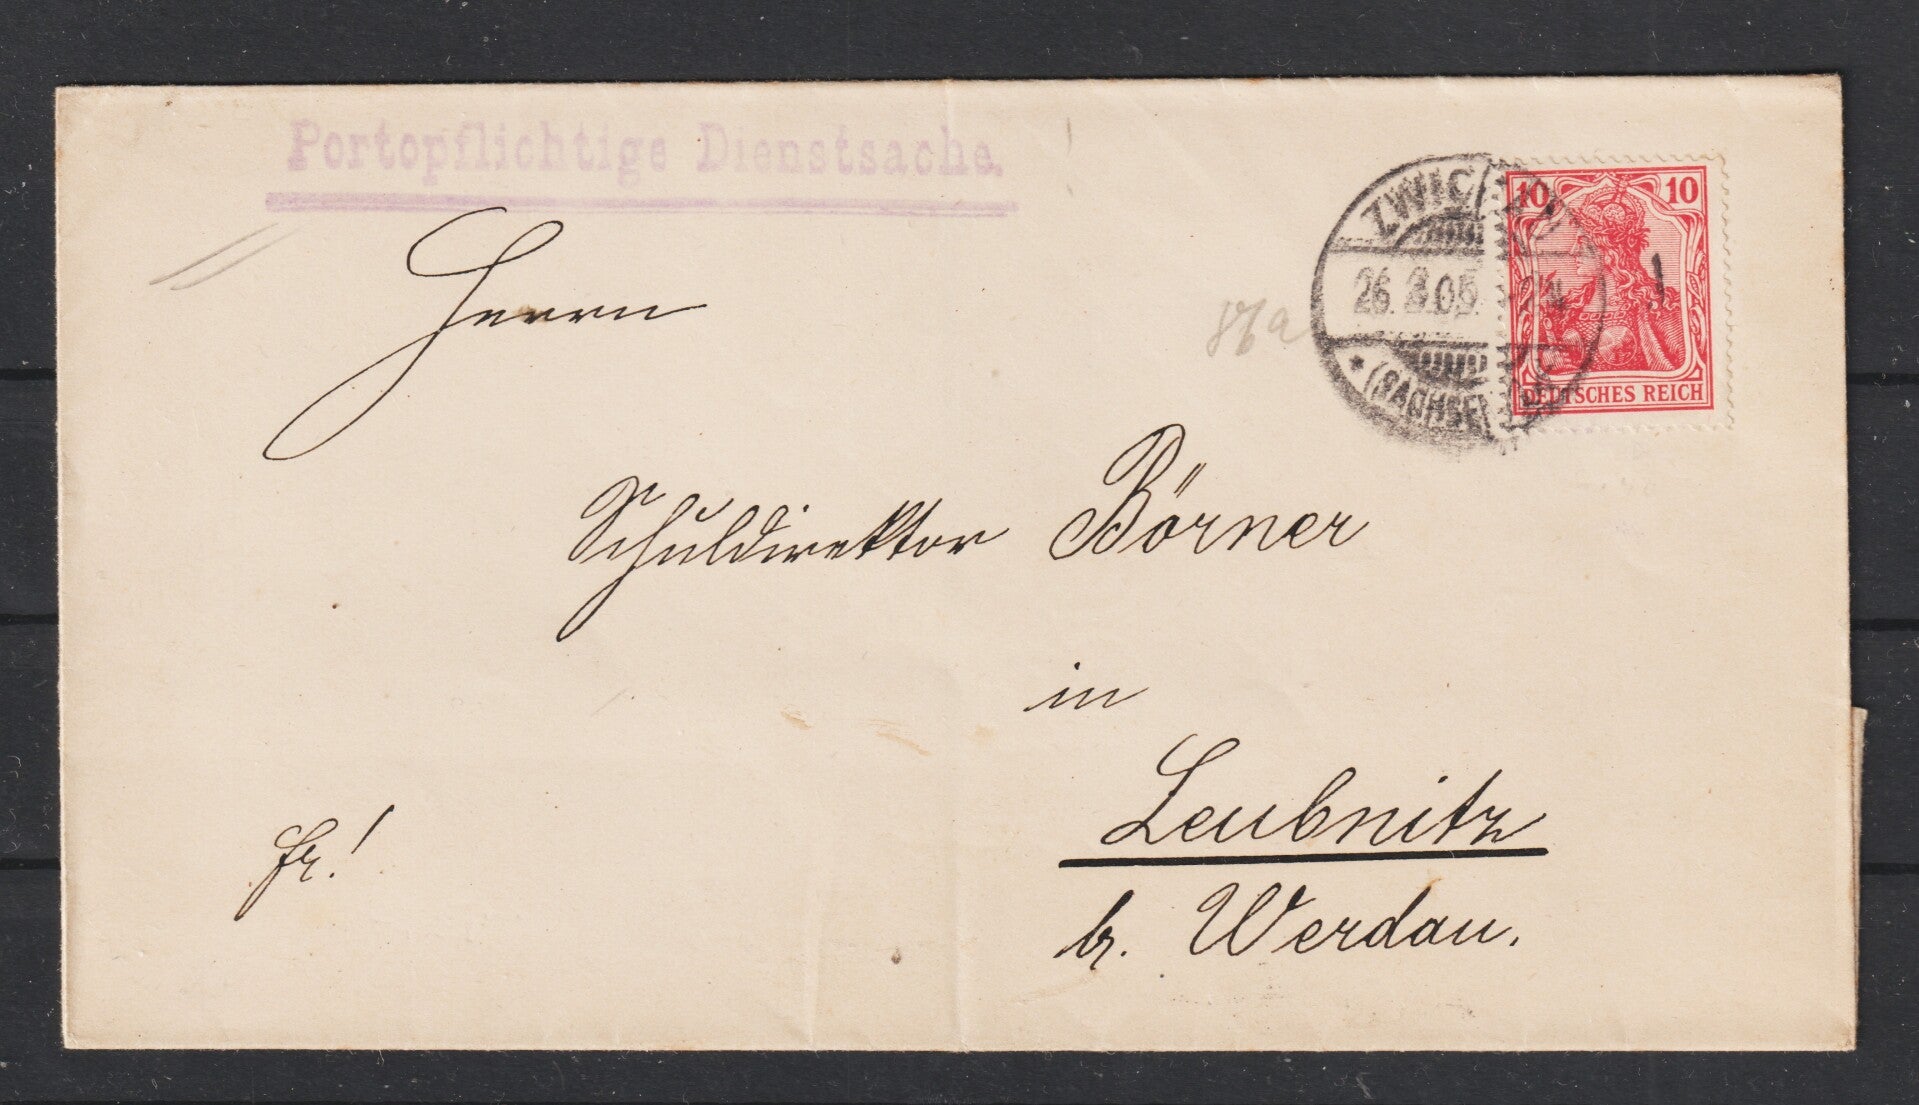 Portopflichtige Dienstsache.
10 10
ZWIC
26. 3.05.
* (SACHSEN
DEUTSCHES REICH
Herrn
86a
Schuldirektor Börner
in
Leubnitz
fr!
b. Werdau.